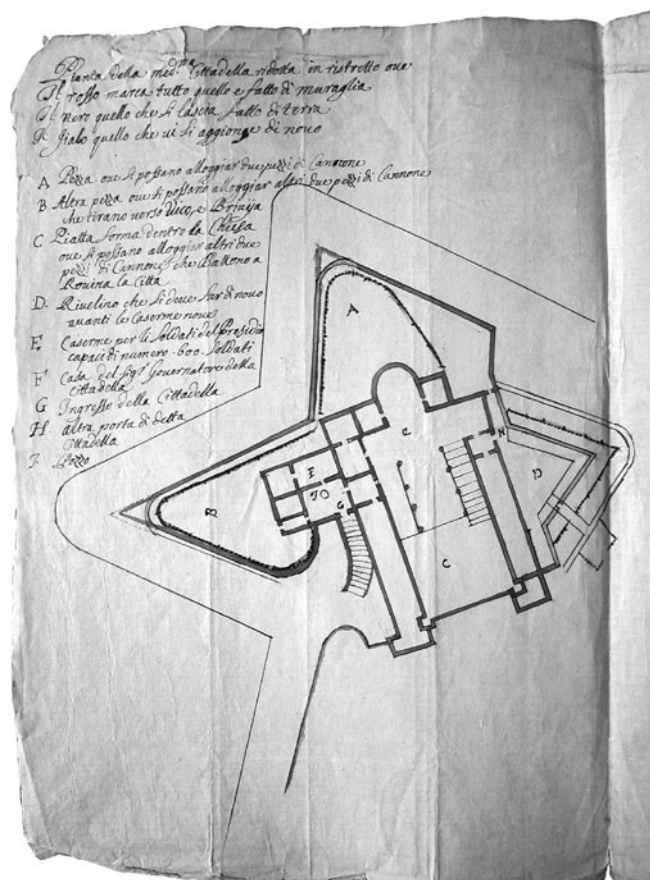 Pianta della med.ma Cittadella ridotta in ristretto oue
Il rosso marca tutto quello e fatto di muraglia
Il nero quello che si lascia fatto di terra
Il gialo quello che ui si aggionge di nouo
A Pezza oue si possano alloggiar due pezzi di Cannone
B Altra pezza oue si possano alloggiar altri due pezzi di Cannone
che tirano uerso Vico, e Briaija
C Piatta forma dentro la Chiesa
oue si possano alloggiar altri due
pezzi di Cannone che Battono a
Rouina la Citta
D. Riuelino che si deue far di nouo
auanti le Caserme noue
E Caserme per li Soldati del Presidio
capaci di numero 600. Soldati
F Casa del Sigr Gouernatore della
Cittadella
G Ingresso della Cittadella
H. altra porta di detta
Cittadella
J. Pozzo
A
C
H
F
D
J
G
B
C